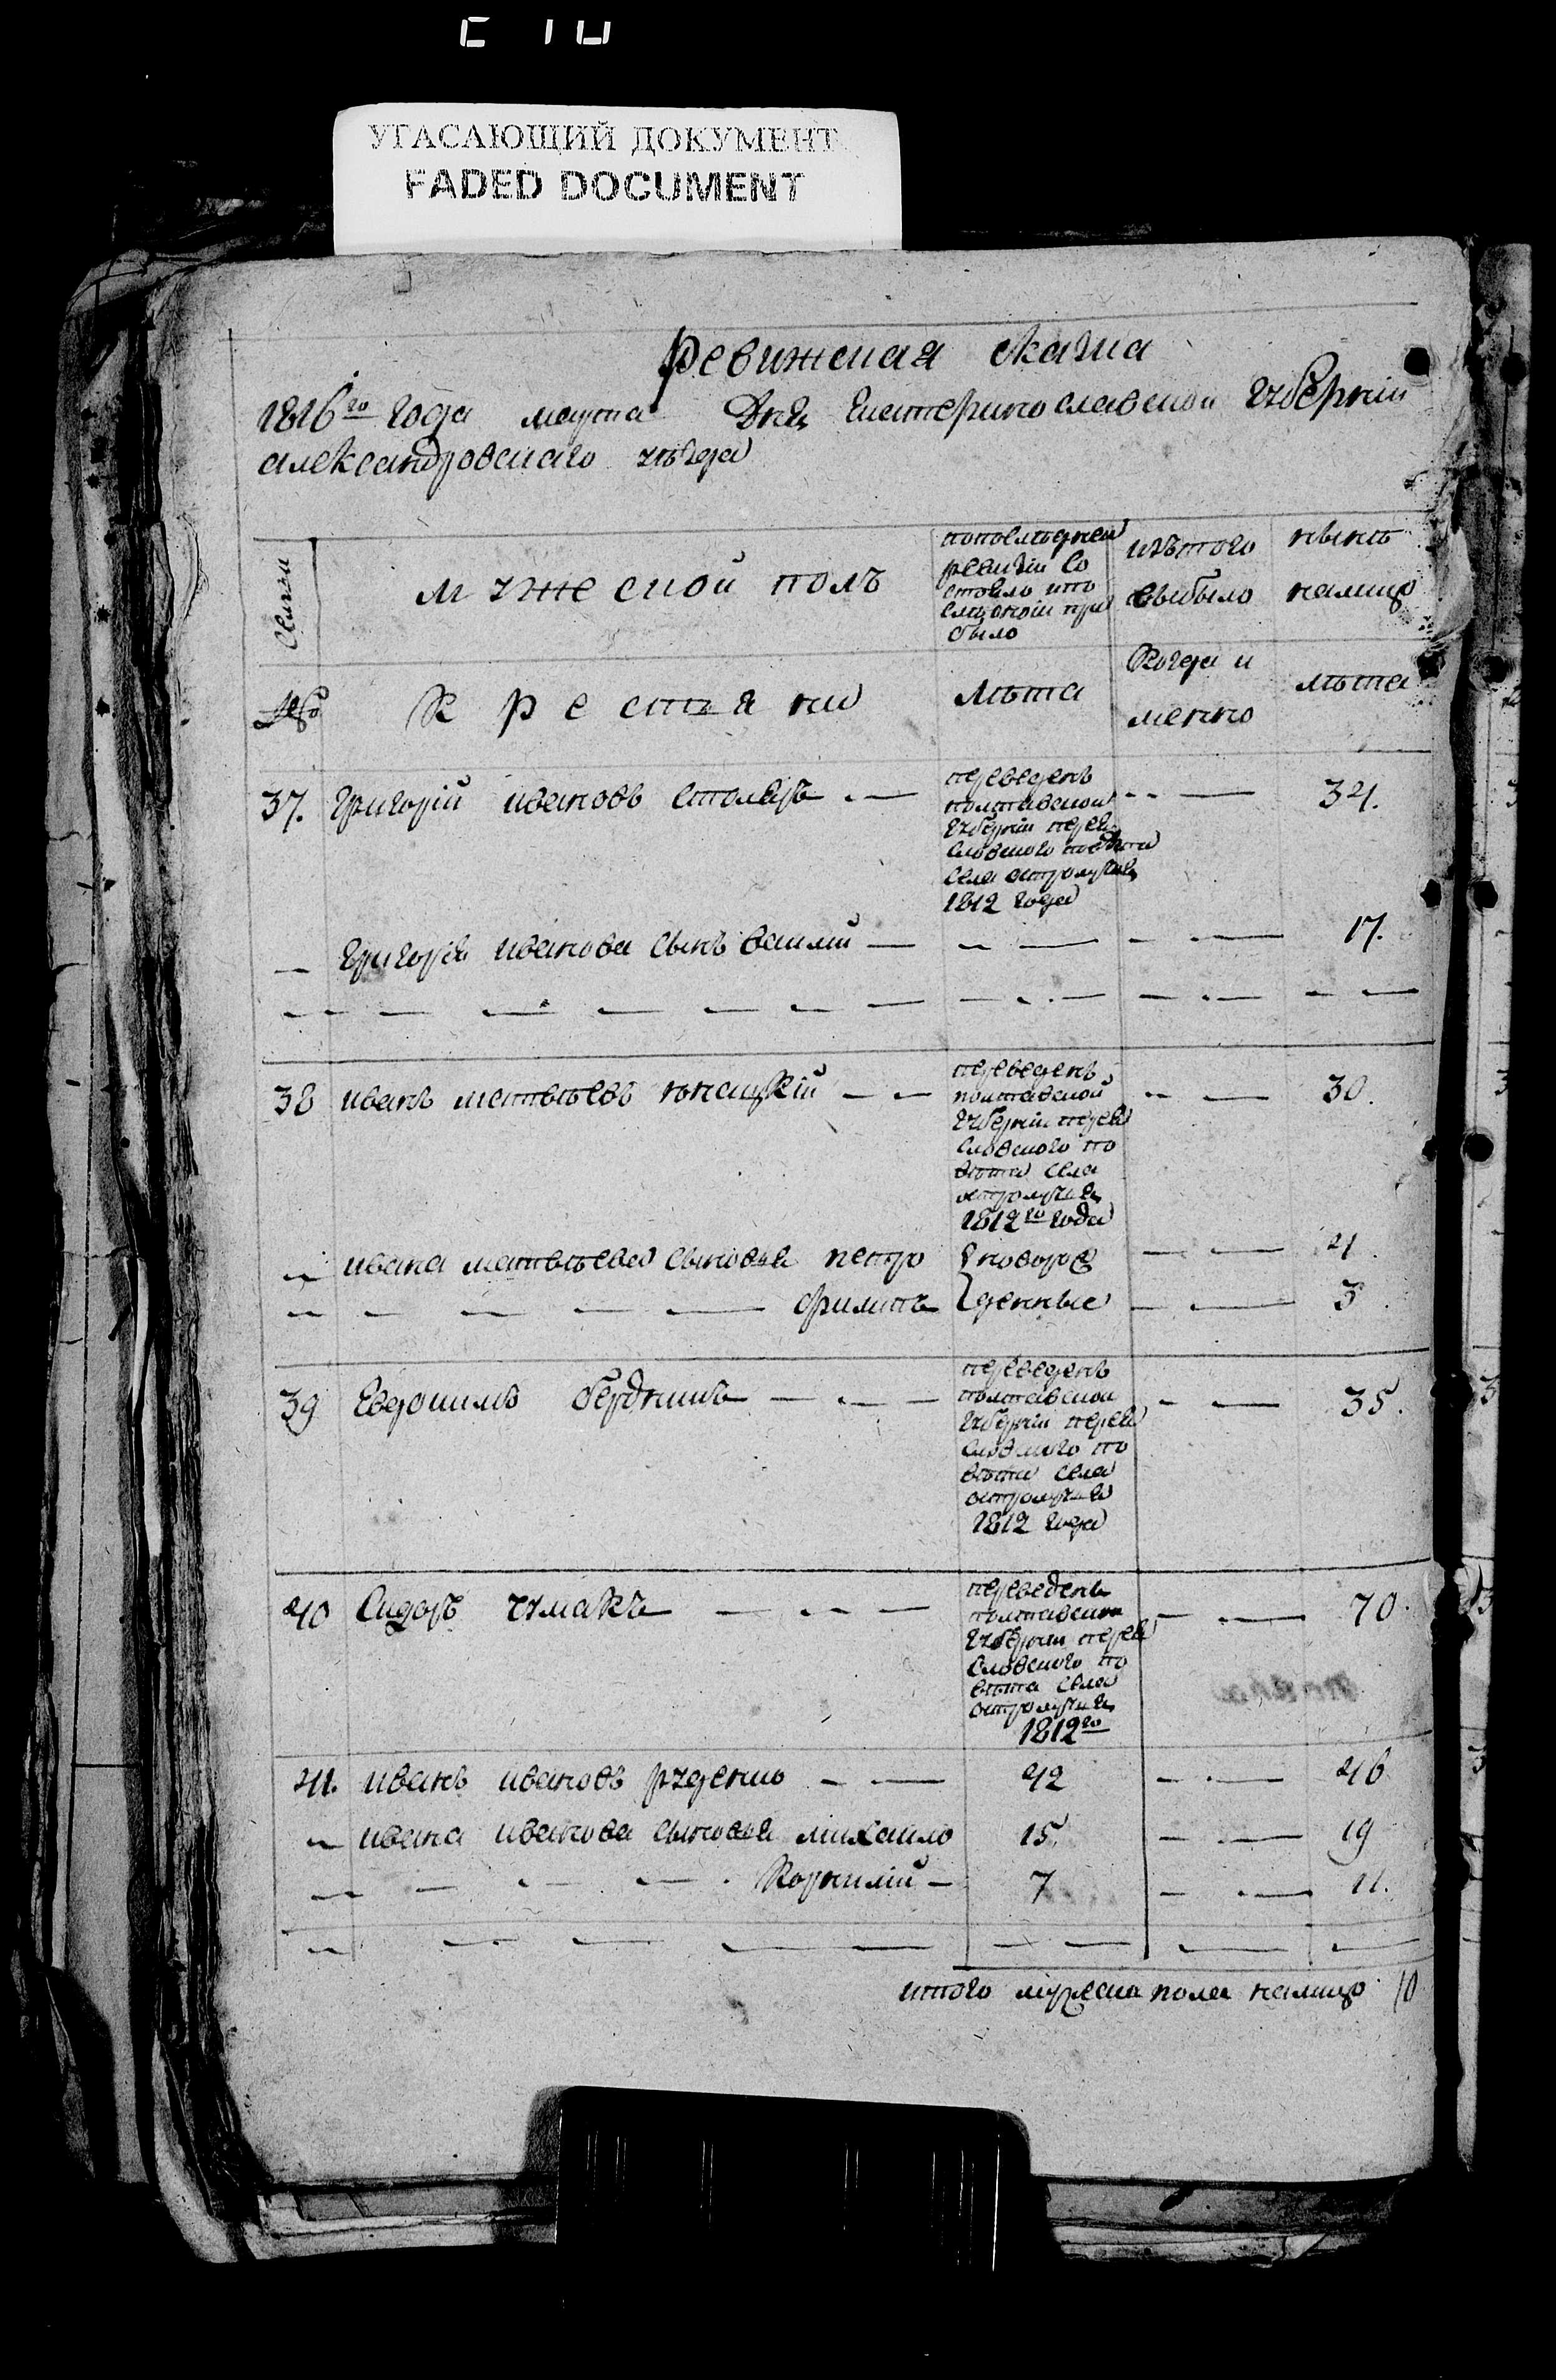 УГАСАЮЩИЙ ДОКУМЕНТ
FADED DOCUMENT
Ревижская скаска
1816го года марта Дня Екатеринославской губернии
александровскаго уѣзда
Семьи
мужеской полъ
попоследней ревизіи состояло ито
после оной прибыло
изътого выбыло
нынѣ налицо
№
Крестьяни
лѣта
Когда и менно
лѣта
37. Григорій ивановъ столяръ
переведенъ
полтавской
губерніи перея
словского повѣта
села остролучья
1812 года
34.
Григорья иванова сынъ василий 17.
38 иванъ матвѣевъ
переведенъ
полтавской
губерніи перея
словского по
вѣта села
остролучья
1812го года
30.
ивана матвѣева сыновья петро новорож 4
филипъ денные 3
39 Евдокимъ бердникъ
переведенъ
полтавской
губерніи перея
словского по
вѣта села
остролучья
1812 года
35.
40 Сидоръ чумакъ
переведенъ
полтавской
губерніи перея
словского по
вѣта села
остролучья
1812го
70.
41. иванъ ивановъ руденко 42 46
ивана иванова сыновья михайло 15. 19
Корнилій 7 11.
итого мужска пола налицо 10